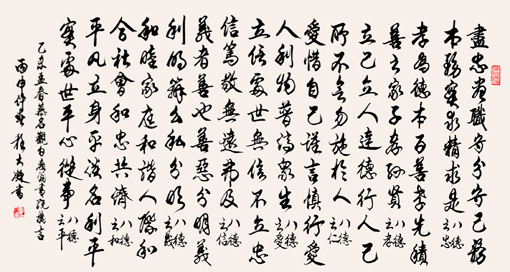 盡忠崗職守分安己務
本務實求精求是 八德之忠
孝為德本百善孝先積
善之家子孝孫賢 八德之孝
立己立人達德行人己
所不欲勿施於人 八德之仁
愛惜自己謹言慎行愛
人利物普濟眾生 八德之愛
立信處世無信不立忠
信篤敬無遠弗及 八德之信
義者善也善惡分明義
利明辨公私分明 八德之義
和睦家庭和諧人際和
合社會和忠共濟 八德之和
平凡立身平淡名利平
實處世平心從事 八德之平
乙未孟春慕名觀白鹿洞書院
丙申仲冬 書